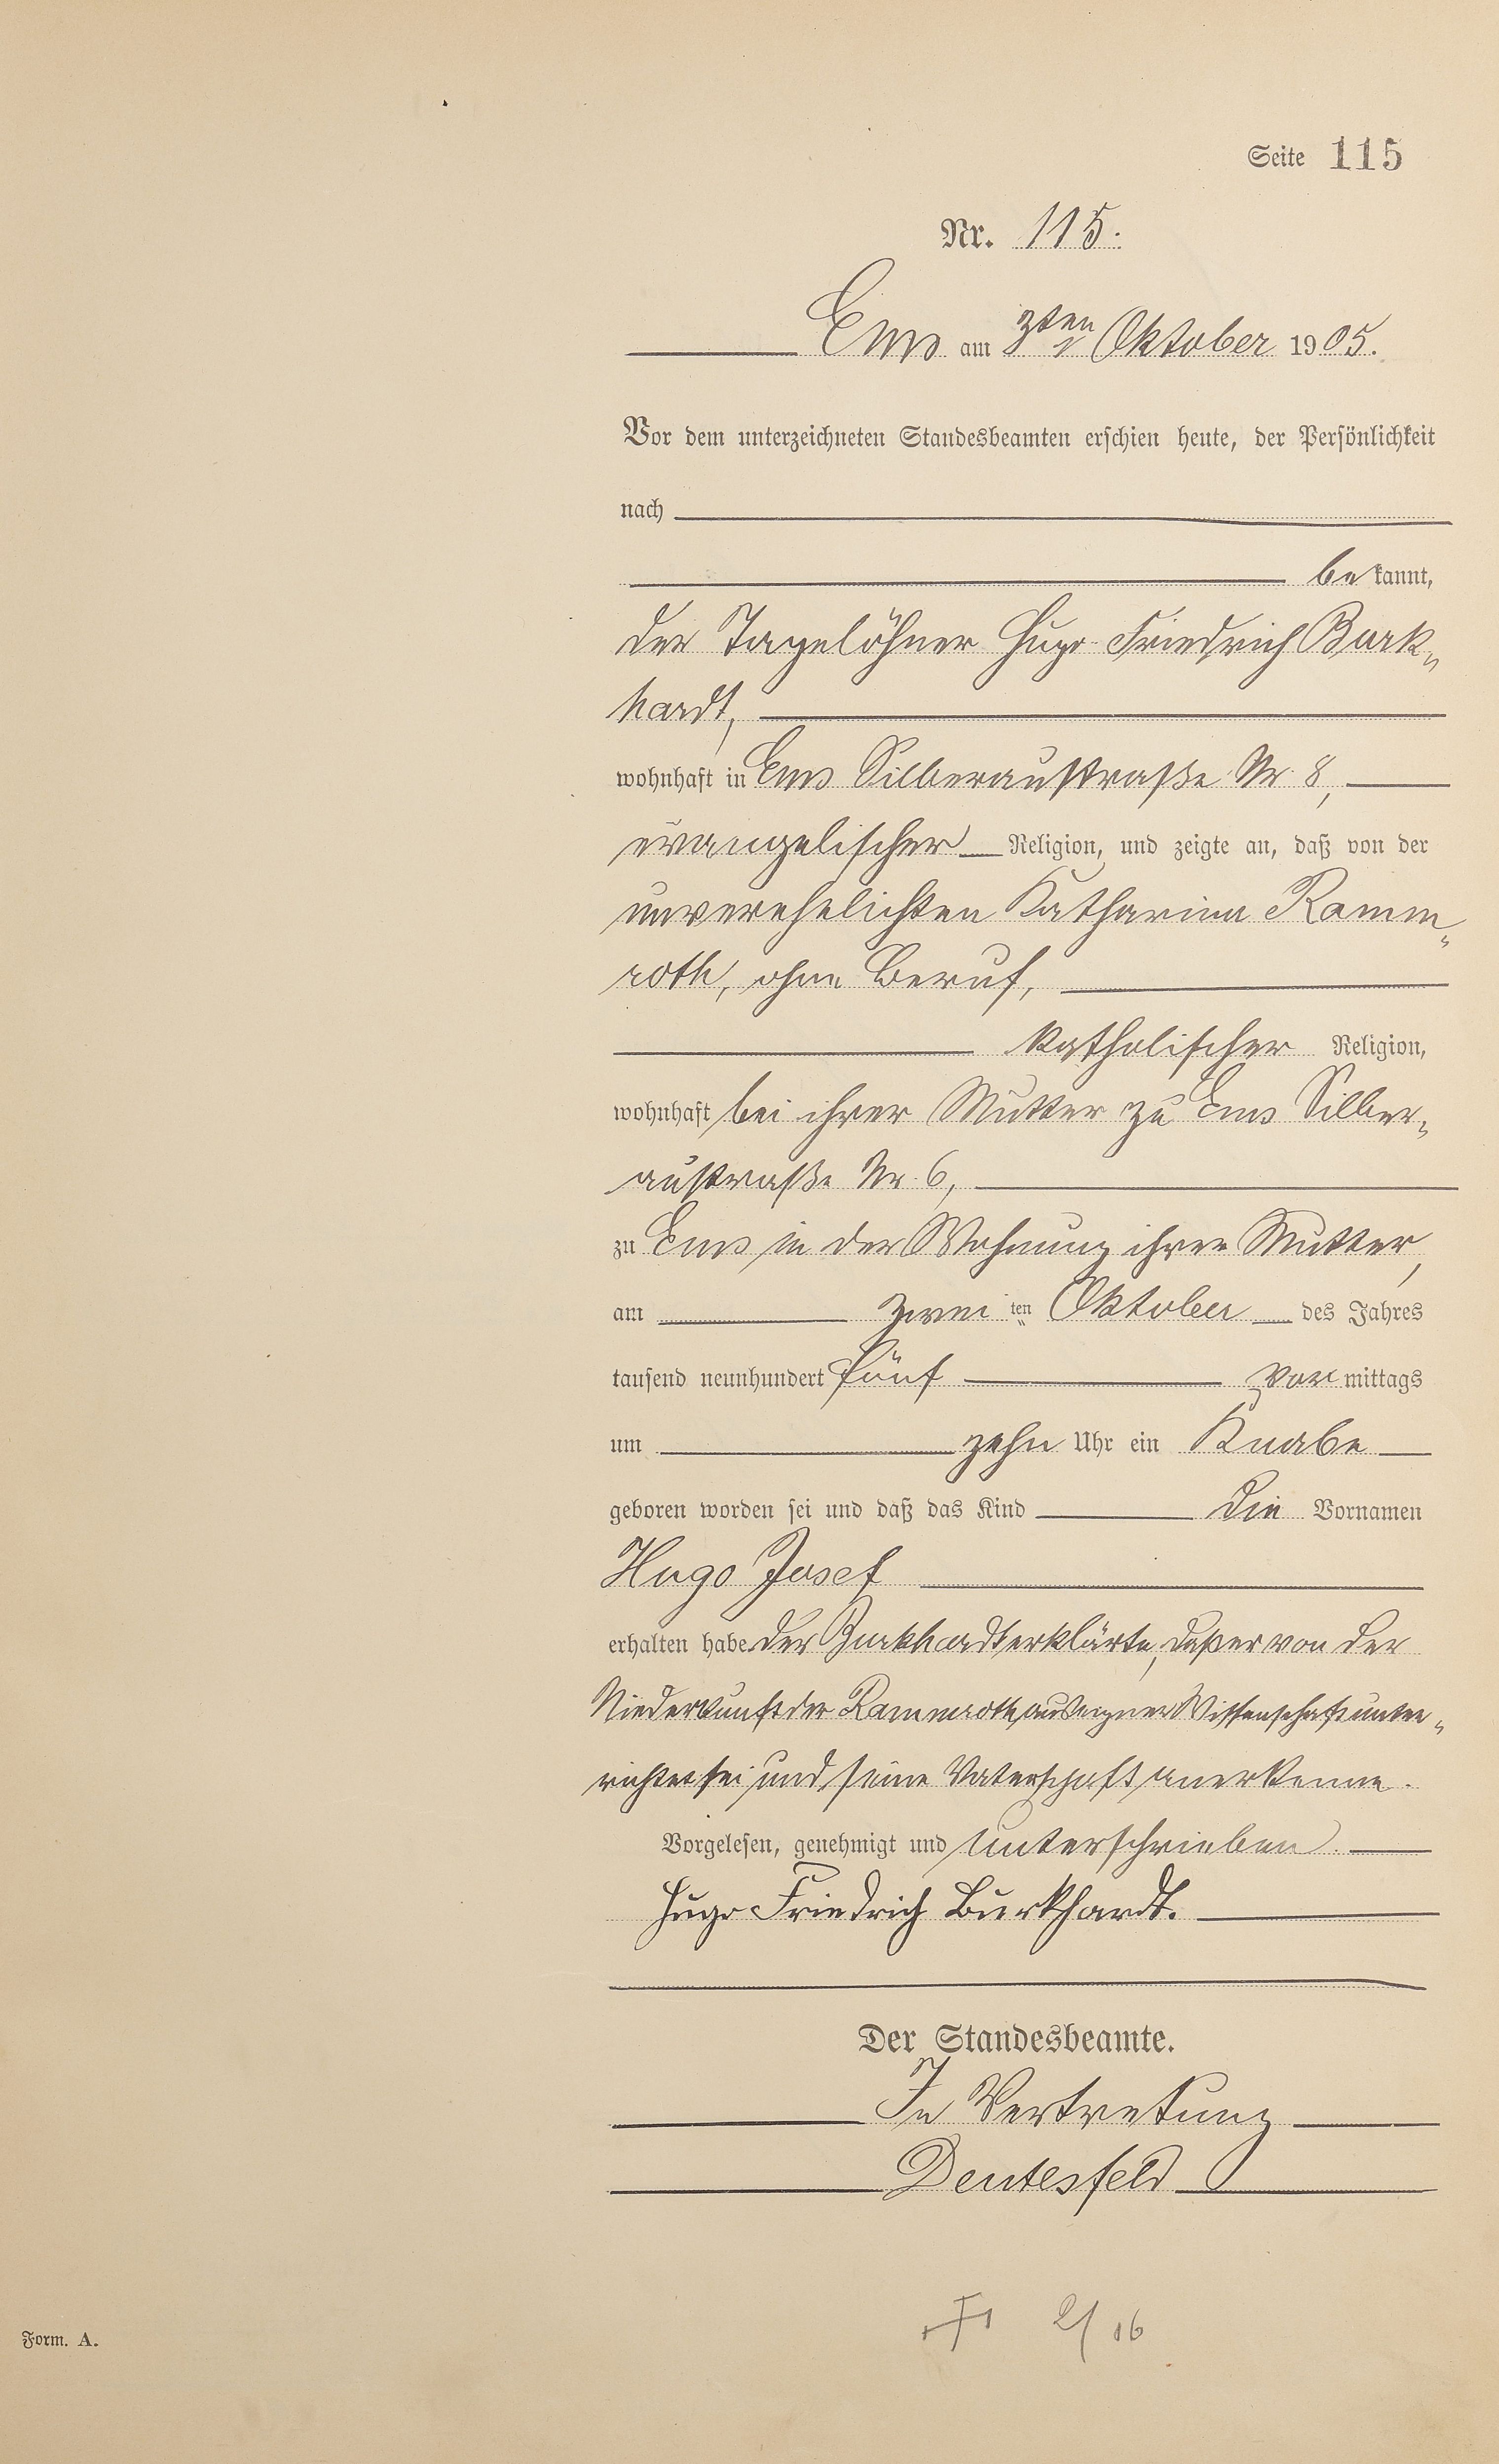 Seite 115
Nr. 115.
Ems am 3ten Oktober 1905.
Vor dem unterzeichneten Standesbeamten erschien heute, der Persönlichkeit
nach
bekannt,
der Tagelöhner Hugo Friedrich Burk„
hardt,
wohnhaft in Ems Silberaustraße Nr. 8,
evangelischer Religion, und zeigte an, daß von der
unverehelichten Katharina Ramm„
roth, ohne Beruf,
katholischer Religion,
wohnhaft bei ihrer Mutter zu Ems Silber„
austraße Nr. 6,
zu Ems in der Wohnung ihrer Mutter,
am zwei ten Oktober des Jahres
tausend neunhundert fünf vor mittags
um zehn Uhr ein Knabe
geboren worden sei und daß das Kind die Vornamen
Hugo Josef
erhalten habe. Der Burkhardt erklärte, daß er von der
Niederkunft der Rammroth aus eigner Wissenschaft unter„
richtet sei und seine Vaterschaft anerkenne.
Vorgelesen, genehmigt und unterschrieben.
Hugo Friedrich Burkhardt.
Der Standesbeamte.
In Vertretung
Deutesfeld
2/ 06
Form. A.